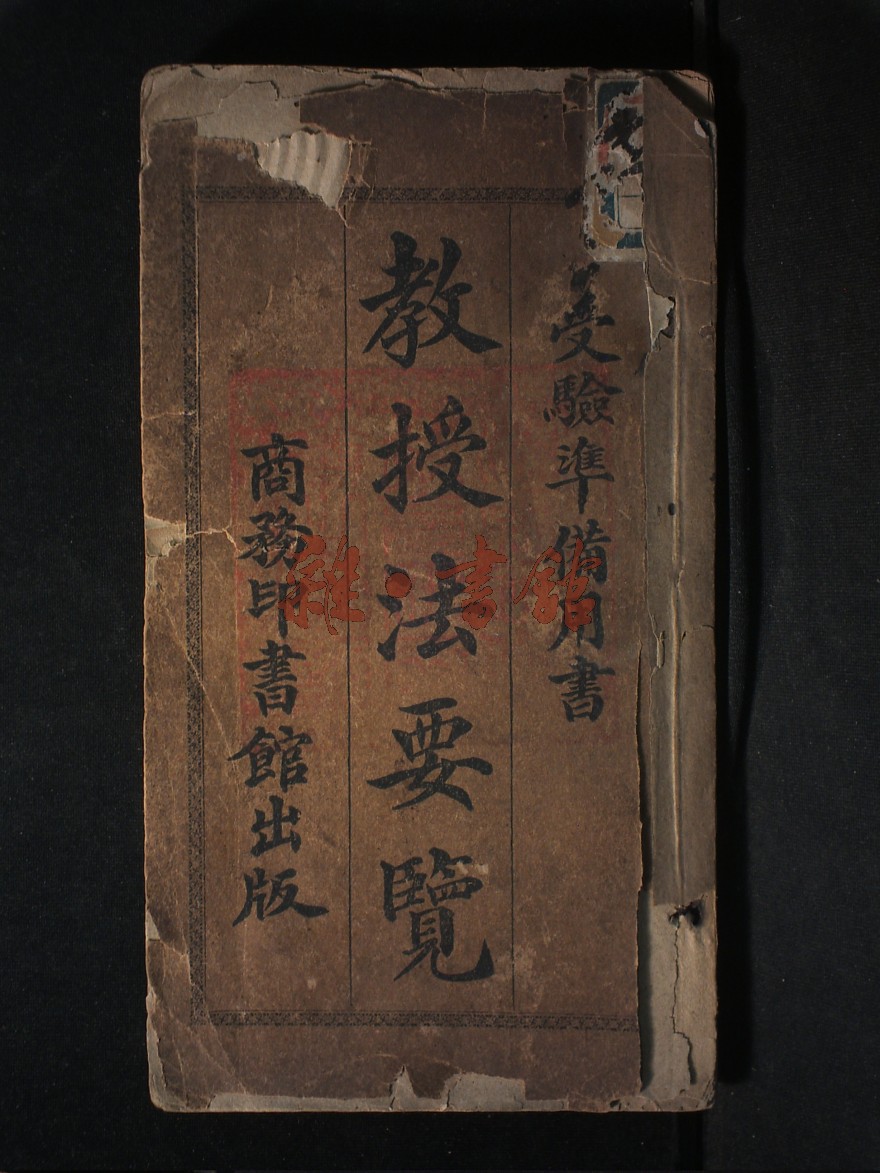 受驗準備用書
教授法要覽
商務印書館出版
雜·書館